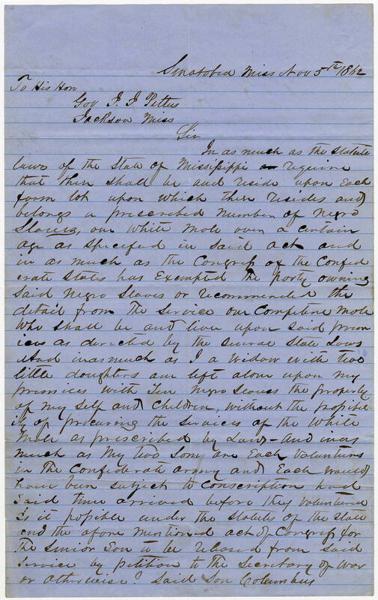 Senatobia Miss Nov 5th 1862
To His Hon
Gov J. J. Pettus
Jackson Miss
Sir
In as much as the Statute
laws of the State of Mississippi require
that there shall be and reside upon each
farm lot upon which there resides and
belongs a prescribed number of Negro
Slaves, one White male over a certain
age as specified in said act and
in as much as the Congress of the Confed
erate States has Exempted the party owning
Said Negro Slaves or recommended the
detail from the Service one Competent male
Who shall be and live upon said prem
ices as directed by the several State Laws
And inasmuch as I a Widow with two
little daughters am left alone upon my
premices with Ten Negro Slaves the property
of my Self and Children, without the possibil
ity of procuring the Services of the White
Male as prescribed by Law – And inas
much as My two Sons are Each Volunteers
in The Confederate army and Each would
have been subject to Conscription had
said time arrived before they volunteered
Is it possible under the statutes of the State
and the afore mentioned act of Congress for
the Senior Son to be released from said
Service by petition to the Secretary of War
or otherwise? Said Son Columbus